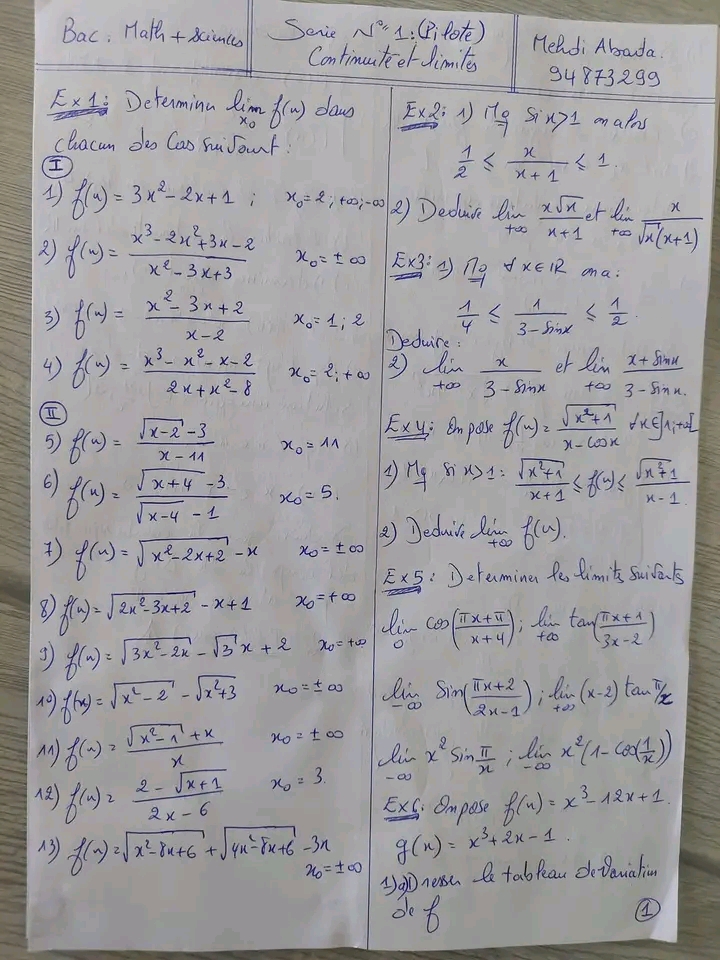 Bac. Math + sciences
Serie N° 1: (Pilote)
Continuité et limites
Mehdi Abada.
94873299
Ex1: Determiner lim f(x) dans
x₀
chacun des Cas suivant:
I
1) f(x) = 3x² - 2x + 1 ; x₀ = 2 ; +∞ ; -∞
2) f(x) = (x³ - 2x² + 3x - 2)/(x² - 3x + 3) x₀ = ± ∞
3) f(x) = (x² - 3x + 2)/(x - 2) x₀ = 1 ; 2
4) f(x) = (x³ - x² - x - 2)/(2x + x² - 8) x₀ = 2 ; +∞
II
5) f(x) = (√(x-2) - 3)/(x - 11) x₀ = 11
6) f(x) = (√(x+4) - 3)/(√(x-4) - 1) x₀ = 5.
7) f(x) = √(x² - 2x + 2) - x x₀ = ± ∞
8) f(x) = √(2x² - 3x + 2) - x + 1 x₀ = +∞
9) f(x) = √(3x² - 2x) - √3 x + 2 x₀ = +∞
10) f(x) = √(x² - 2) - √(x² + 3) x₀ = ± ∞
11) f(x) = (√(x² - 1) + x)/x x₀ = ± ∞
12) f(x) = (2 - √(x+1))/(2x - 6) x₀ = 3.
13) f(x) = √(x² - 8x + 6) + √(4x² - 8x + 6) - 3x
x₀ = ± ∞
Ex2: 1) Mq Si x > 1 on a lors
1/2 ≤ x/(x+1) ≤ 1.
2) Deduire lim +∞ (x√x)/(x+1) et lim +∞ x/(√x(x+1))
Ex3: 1) Mq ∀ x ∈ IR on a:
1/4 ≤ 1/(3 - sinx) ≤ 1/2.
Deduire:
2) lim +∞ x/(3 - sinx) et lim +∞ (x + sinx)/(3 - sinx).
Ex4: On pose f(x) = √(x²+1)/(x - cosx) ∀x∈]1;+∞[
1) Mq Si x>1: √(x²+1)/(x+1) ≤ f(x) ≤ √(x²+1)/(x-1).
2) Deduire lim +∞ f(x).
Ex5: Determiner les limits suivants
lim 0 cos((πx+π)/(x+4)) ; lim +∞ tan((πx+1)/(3x-2))
lim -∞ Sin((πx+2)/(2x-1)) ; lim +∞ (x-2) tan π/x
lim -∞ x² Sin π/x ; lim -∞ x²(1 - Cos(1/x))
Ex6: On pose f(x) = x³ - 12x + 1.
g(x) = x³ + 2x - 1.
1) a) Dresser le tableau de Variation
de f
1